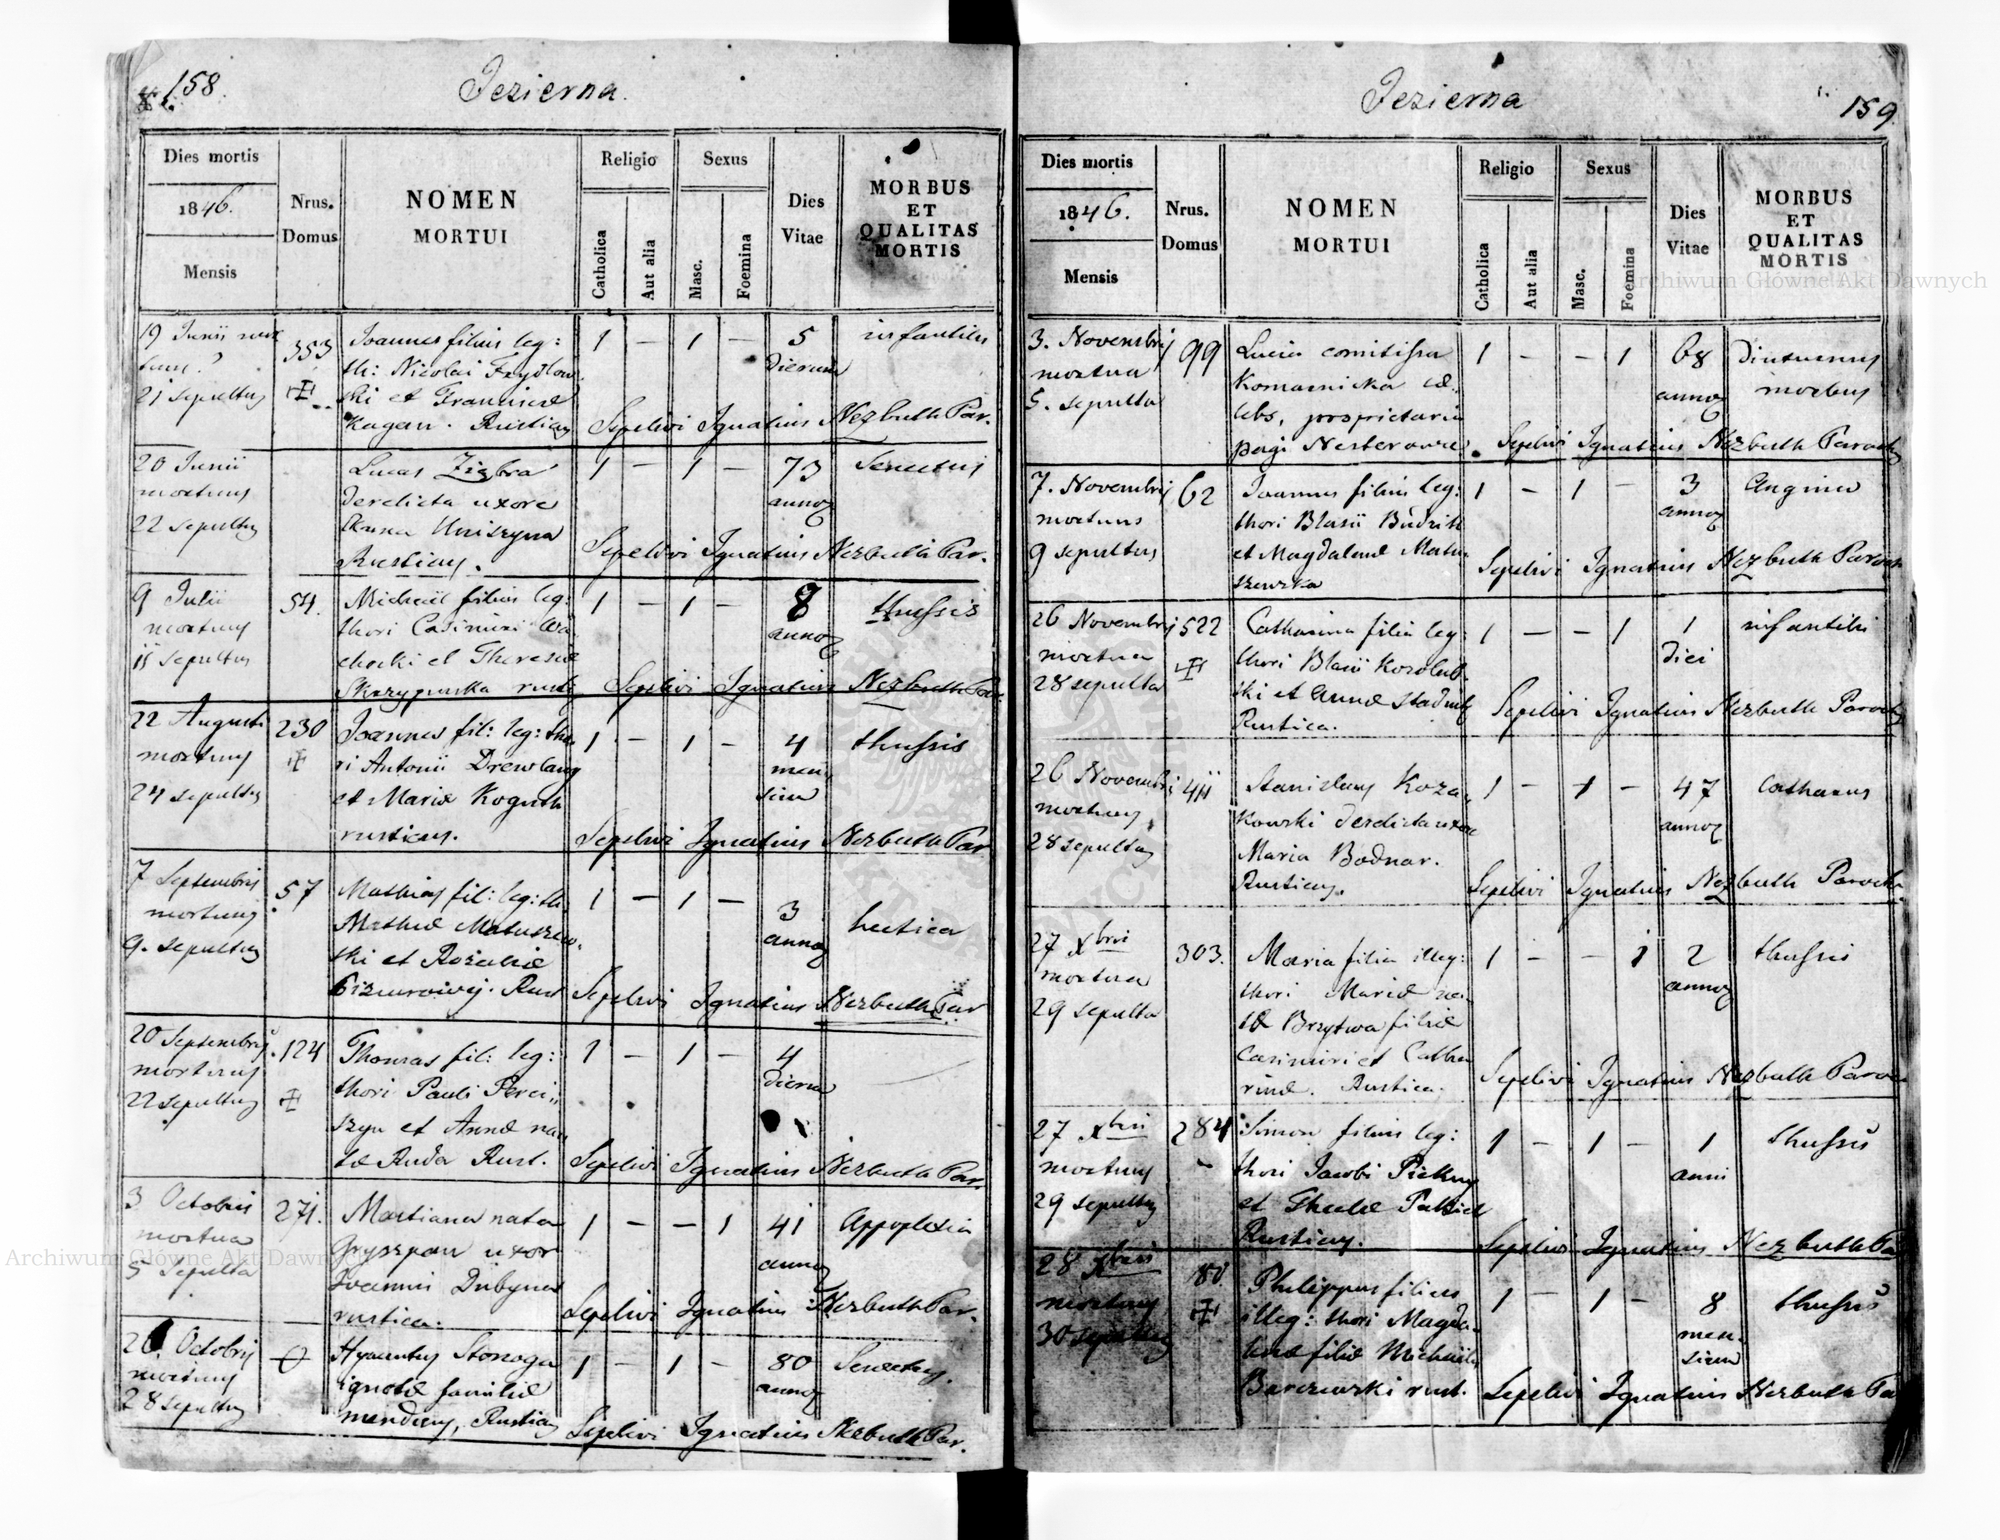 158.
Jezierna.
Dies mortis
1846.
Mensis
Nrus.
Domus
NOMEN
MORTUI
Religio
Catholica
Aut alia
Sexus
Masc.
Foemina
Dies
Vitae
MORBUS
ET
QUALITAS
MORTIS
19 Junii
21 sepultus
353
Joannes filius leg:
th: Nicolai Frydlow
ski et Francisca
Kagan. Rusticus
1 — 1 — 5
dierum
infantilis
Sepelivi Ignatius Nezbuth Par.
20 Junii
mortuus
22 sepultus
Lucas Zięba
derelicta uxore
Anna
Rusticus.
1 — 1 — 73
annor
Senectus
Sepelivi Ignatius Nezbuth Par.
9 Julii
mortuus
11 sepultus
54.
Michael filius leg:
thori Casimiri Woj
ciechowski et Theresiæ
1 — 1 — 8
annor
thussis
Sepelivi Ignatius Nezbuth Par.
22 Augusti
mortuus
24 sepultus
230
Joannes fil: leg: tho
ri Antonii Drewlany
et Mariæ Koguth
rusticus.
1 — 1 — 4
men
sium
thussis
Sepelivi Ignatius Nezbuth Par.
7 Septembris
mortuus
9. sepultus
57
Mathias fil: leg: th.
Mathiæ Matuszew
ski et Rozaliæ
Rust
1 — 1 — 3
annor
hectica
Sepelivi Ignatius Nezbuth Par
20 Septembris
mortuus
22 sepultus
124
Thomas fil: leg:
thori Pauli
et Annæ na
tæ Ruda Rust.
1 — 1 — 4
dierum
Sepelivi Ignatius Nezbuth Par.
3 Octobris
mortua
5 sepulta
271.
Marianna nata
Gryszpan uxor
Joannis Dubyna
rustica.
1 — — 1 41
annor
Appoplexia
Sepelivi Ignatius Nezbuth Par.
26 Octobris
mortuus
28 sepultus
0
Hyacinthus Stonoga
ignotæ familiæ
mendicus, Rusticus
1 — 1 — 80
annor
Senectus.
Sepelivi Ignatius Nezbuth Par.
Jezierna
159
Dies mortis
1846.
Mensis
Nrus.
Domus
NOMEN
MORTUI
Religio
Catholica
Aut alia
Sexus
Masc.
Foemina
Dies
Vitae
MORBUS
ET
QUALITAS
MORTIS
3. Novembris
mortua
5. sepulta
99
Lucia comitissa
Komarnicka cæ
lebs, proprietaria
pagi Nesterowce
1 — — 1 68
annor
Diuturnus
morbus
Sepelivi Ignatius Nezbuth Paroch
7. Novembris
mortuus
9 sepultus
62
Joannes filius leg:
thori Blasii Budzik
et Magdalenæ Matu
szewska
1 — 1 — 3
annor
Angina
Sepelivi Ignatius Nezbuth Paroch
26 Novembris
mortua
28 sepulta
522
Catharina filia leg:
thori Blasii Kozlow
ski et Annæ
Rustica.
1 — — 1 1
diei
infantilis
Sepelivi Ignatius Nezbuth Paroch
26 Novembris
mortuus
28 sepultus
411
Stanislaus Koza
kowski derelicta uxore
Maria Bodnar.
Rusticus.
1 — 1 — 47
annor
Catharus
Sepelivi Ignatius Nezbuth Paroch
27 Xbris
mortua
29 sepulta
303.
Maria filia illeg:
thori Mariæ na
tæ Brzytwa filiæ
Casimiri et Catha
rinæ. Rustica.
1 — — 1 2
annor
thussis
Sepelivi Ignatius Nezbuth Paroch
27 Xbris
mortuus
29 sepultus
284
Simon filius leg:
thori Jacobi
et Theclæ
Rusticus.
1 — 1 — 1
anni
thussis
Sepelivi Ignatius Nezbuth Pa
28 Xbris
mortuus
30 sepultus
80
Philippus filius
illeg: thori Magda
lenæ filiæ Michaelis
Barczewski rust.
1 — 1 — 8
men
sium
thussis
Sepelivi Ignatius Nezbuth Pa
Archiwum Główne Akt Dawnych
Archiwum Główne Akt Dawnych